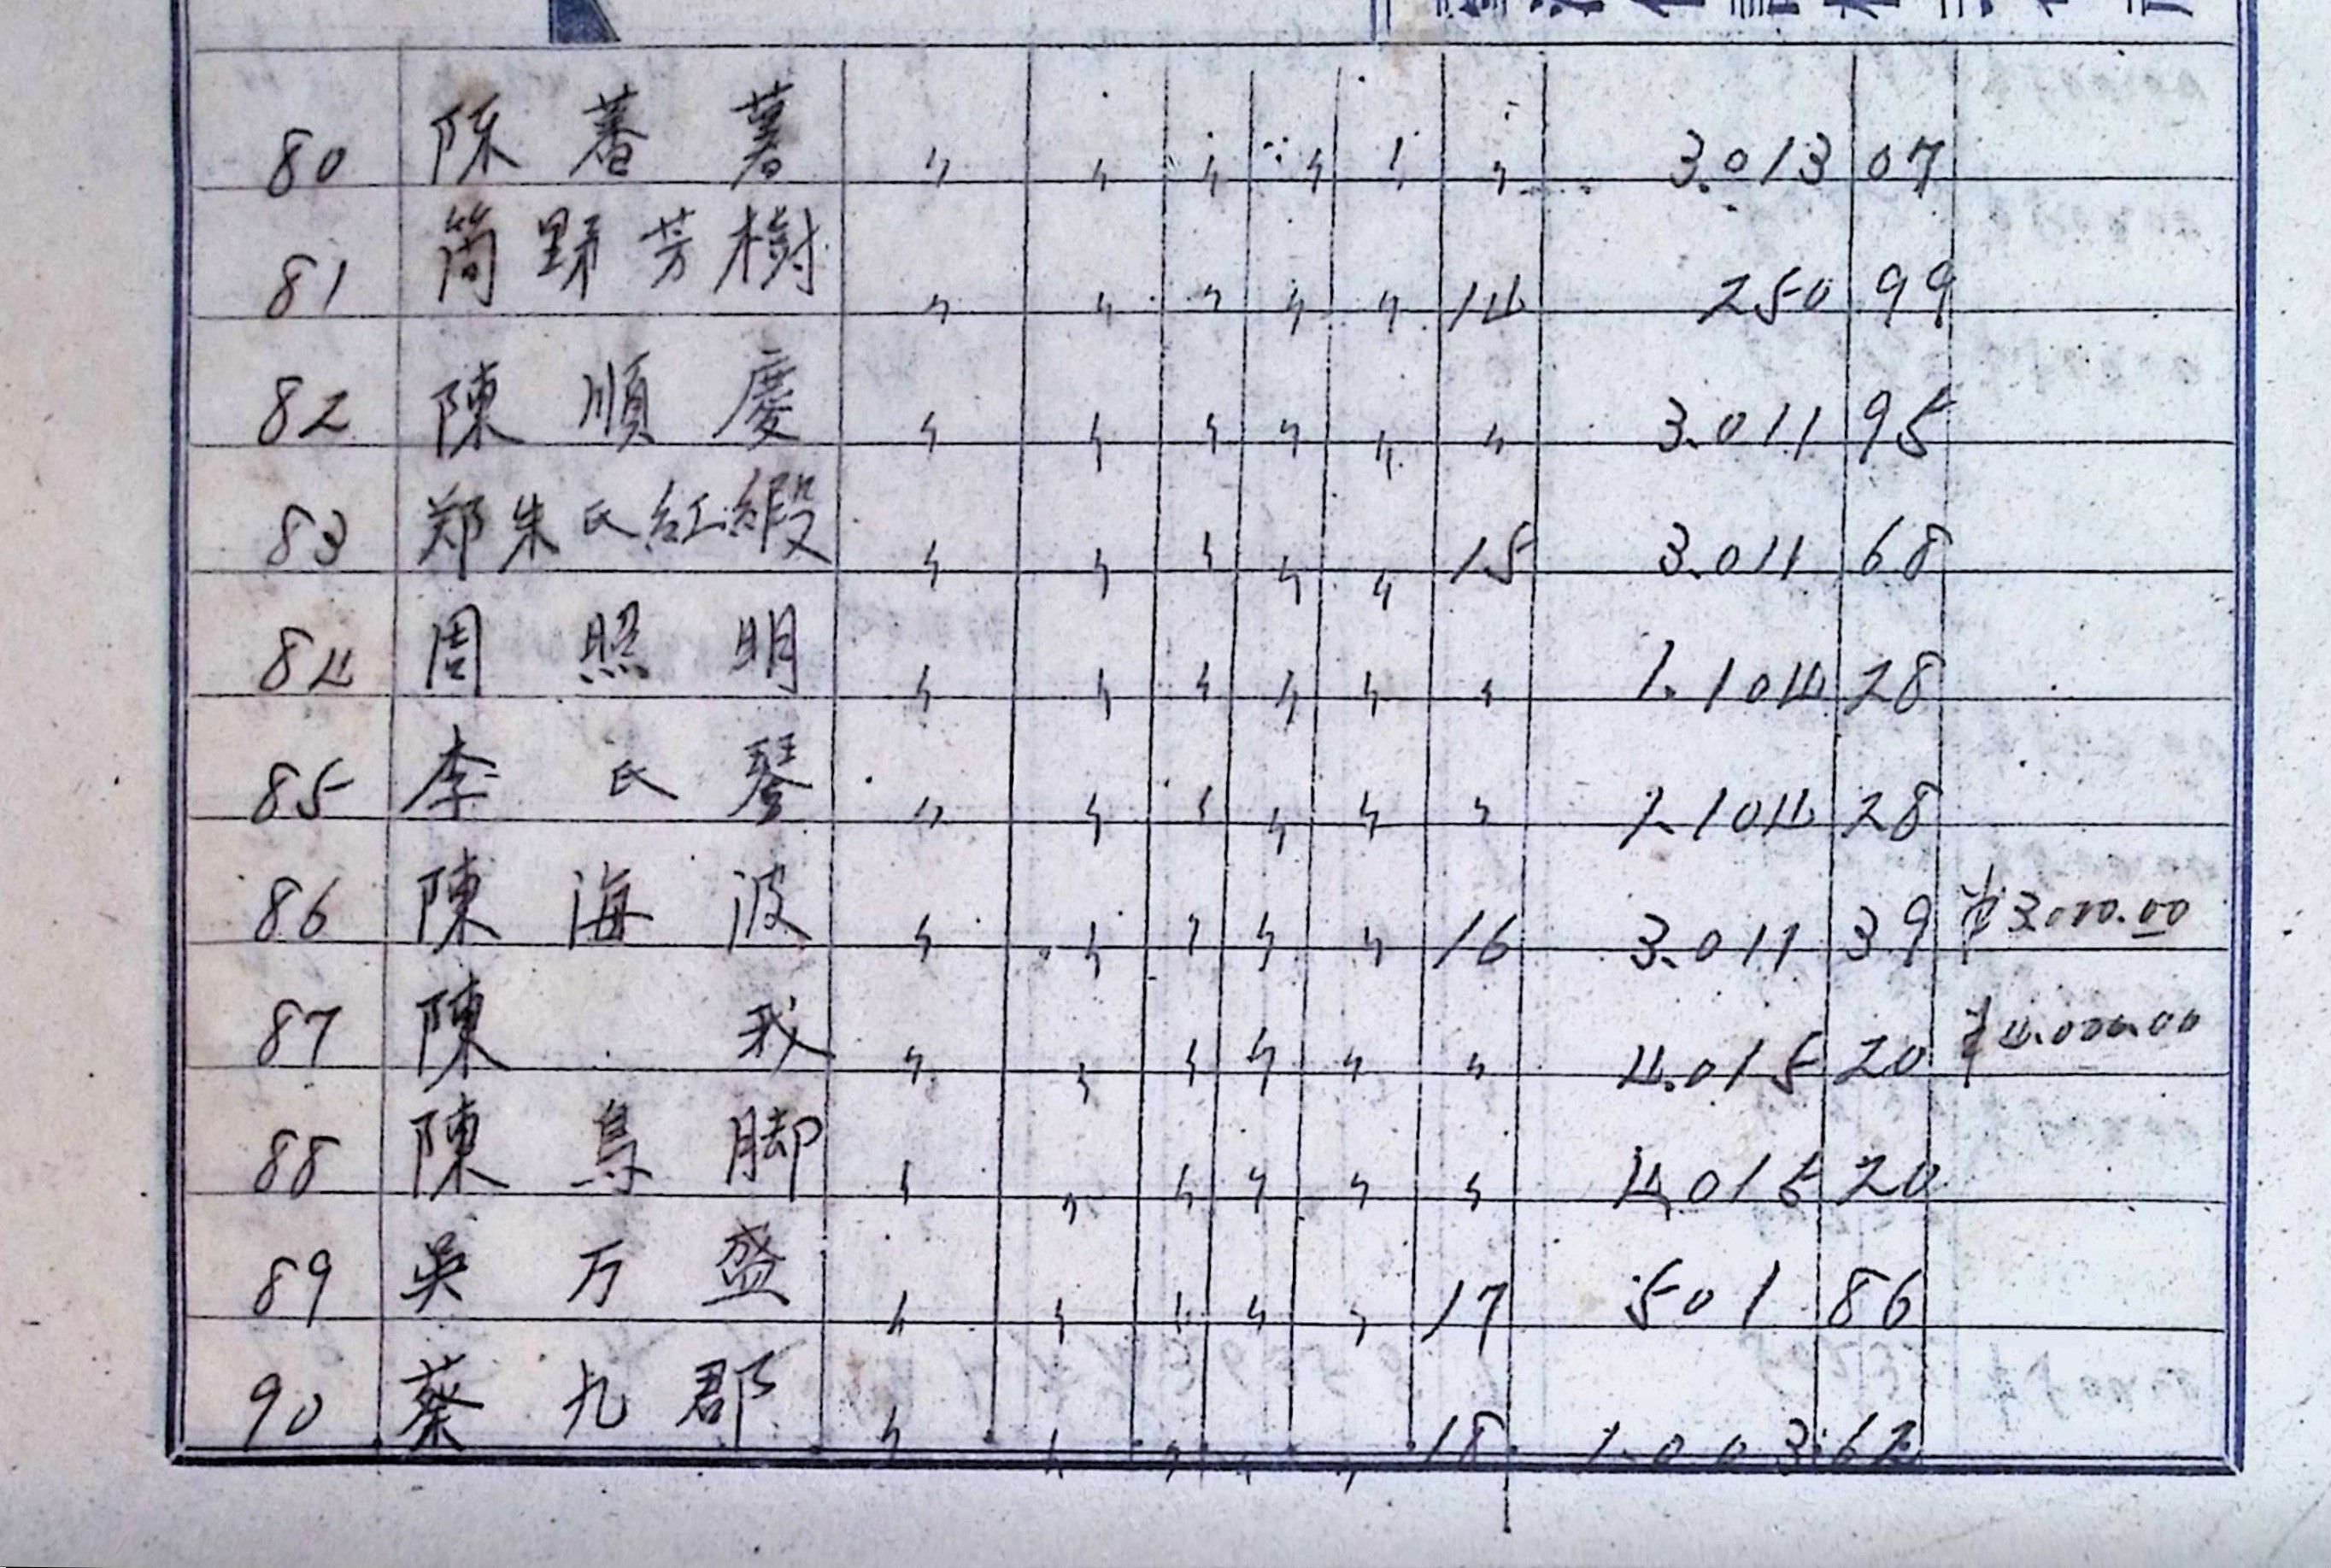 80 陳蕃薯 〃 〃 〃 〃 〃 〃 3.013 07
81 簡野芳樹 〃 〃 〃 〃 〃 14 250 99
82 陳順慶 〃 〃 〃 〃 〃 〃 3.011 95
83 郑朱氏紅緞 〃 〃 〃 〃 〃 15 3.011 68
84 周照明 〃 〃 〃 〃 〃 〃 1.104 28
85 李氏琴 〃 〃 〃 〃 〃 〃 1.104 28
86 陳海波 〃 〃 〃 〃 〃 16 3.011 39 ¥3.000.00
87 陳我 〃 〃 〃 〃 〃 〃 4.015 20 ¥4.000.00
88 陳鳥脚 〃 〃 〃 〃 〃 〃 4.015 20
89 吳万盛 〃 〃 〃 〃 〃 17 501 86
90 蔡九郡 〃 〃 〃 〃 〃 18 1.003 62